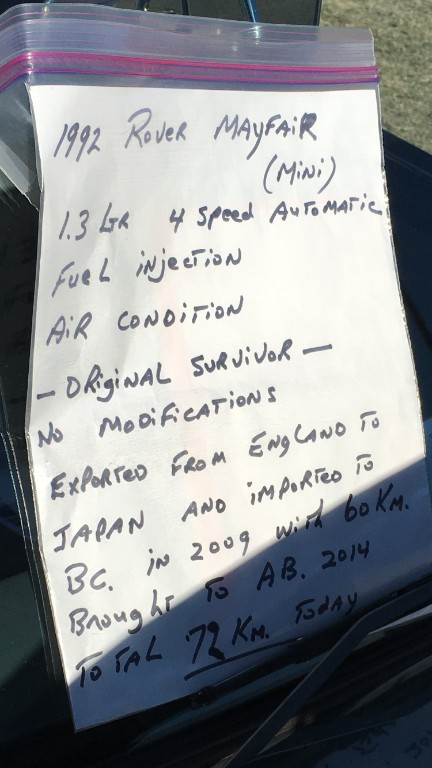 1992 Rover Mayfair
(Mini)
1.3 Ltr 4 Speed Automatic
Fuel injection
Air Condition
- Original Survivor -
No Modifications
Exported from England to
Japan and imported to
BC. in 2009 with 60 Km.
Brought to AB. 2014
Total 72 Km. Today